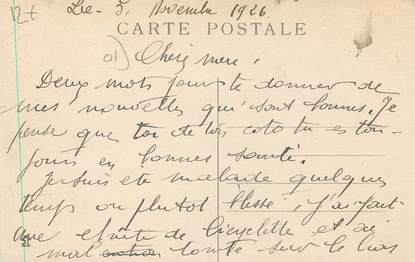 Le 5 Novembre 1926
CARTE POSTALE
Cher mere,
Deux mots pour te donner de
mes nouvelles qui sont bonnes. Je
pense que toi de ton coté tu es tou-
jours en bonnes santé.
Je suis été malade quelques
temps ou plutot blessé, j'ai fait
une chute de bicyclette et ai
mal tombé sur le bras